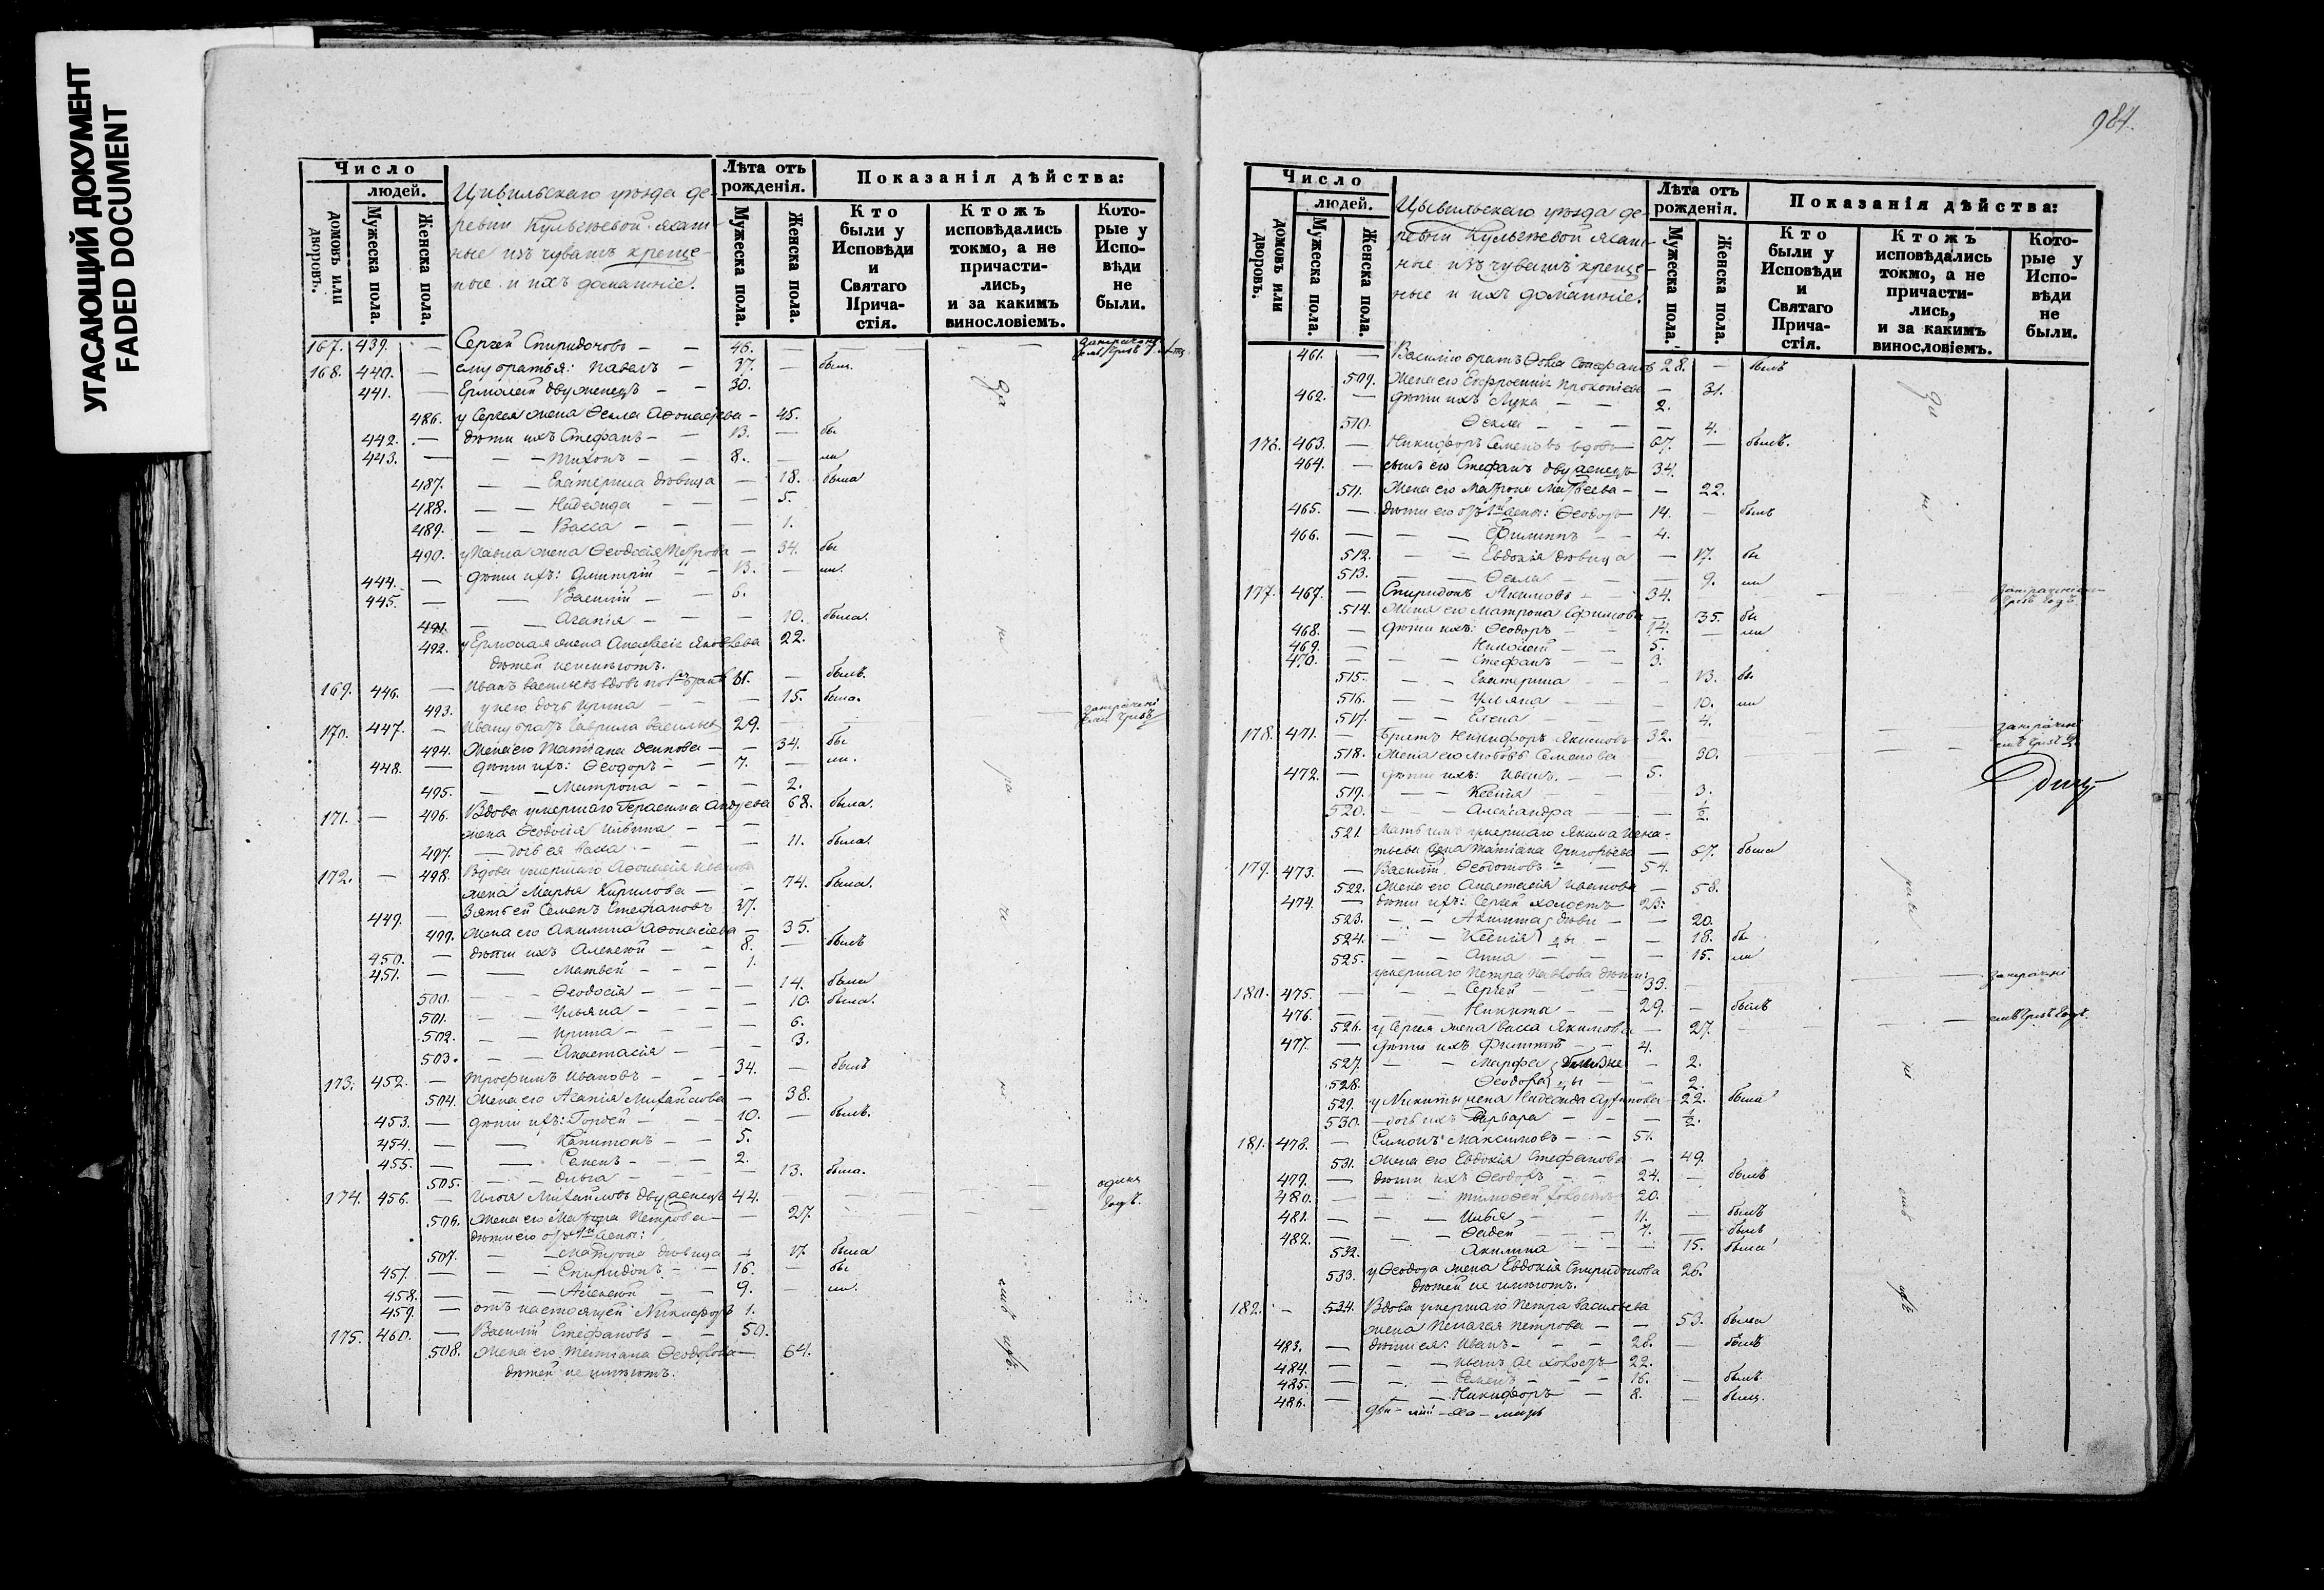 УГАСАЮЩИЙ ДОКУМЕНТ
FADED DOCUMENT
Число
людей.
домовъ или дворовъ.
Мужеска пола.
Женска пола.
Цивильскаго уѣзда де-
ревни
ные изъ чувашъ креще-
ные и ихъ домашніе.
Лѣта отъ рожденія.
Мужеска пола.
Женска пола.
Показанія дѣйства:
Кто были у Исповѣди и Святаго Прича-стія.
Ктожъ исповѣдались токмо, а не причасти-лись, и за какимъ винословіемъ.
Кото-рые у Испо-вѣди не были.
167. 439. — Сергей Спиридоновъ — — 46. —
168. 440. — ему братья: Павелъ — 37. — были.
441. — Ермолай двуженецъ — — 30.
486. у Сергея жена Ѳекла Аѳонасьева — 45.
442. — дѣти ихъ Стефанъ — — 13. — бы
443. — — — Тихонъ — — 8. — ли
487. — — Екатерина дѣвица — 18. была
488. — — Надежда — — 5.
489. — — Васса — — — 1.
490. у Павла жена Ѳеодосія Петрова — 34. бы
444. — дѣти ихъ: Дмитрій — — 13. — ли.
445. — — Василій — — 6.
491. — — Агапія — — — 10. была.
492. у Ермолая жена Анастасія Яковлева 22.
дѣтей неимѣютъ.
169. 446. — Иванъ Васильевъ вдовъ по 61. — былъ.
493. у него дочь Ирина — — — 15. была.
170. 447. — Ивану братъ Гаврила Васильевъ 29.
494. жена его Татіана Осипова — — 34. бы
448. — дѣти ихъ: Ѳеодоръ — — 7. — ли.
495. — — Матрона — — — 2.
171. — 496. Вдова умершаго Герасима Андреева 68. была.
жена Ѳеодосія Ильина — — —
497. — дочь ея Васса — — — 11. была.
172. — 498. Вдова умершаго Аѳонасія Иванова
жена Марья Кирилова — — 74. была.
449. — Зять ей Семенъ Стефановъ 37.
499. жена его Акилина Аѳонасіева — 35.
450. — дѣти ихъ Алексей — — 8. — былъ
451. — — Матвей — — 1.
500. — — Ѳеодосія — — — 14. была
501. — — Ульяна — — — 10. была.
502. — — Ирина — — — 6.
503. — — Анастасія — — 3.
173. 452. — Трофимъ Ивановъ — — 34. — былъ
504. жена его Агапія Михайлова — 38.
453. — дѣти ихъ: Гордей — — 10. — былъ.
454. — — Капитонъ — — 5.
455. — — Семенъ — — 2.
505. — — Ольга — — — 13. была.
174. 456. — Илья Михайловъ двуженецъ 44. — один
506. жена его Матрона Петрова — — 27. годъ.
дѣти его отъ 1й жены:
507. — — Матрона дѣвица — 17. была
457. — — Спиридонъ — — 16. — бы
458. — — Алексей — — 9. — ли.
459. — отъ настоящей Никифоръ 1.
175. 460. — Василій Стефановъ — — 50.
508. жена его Татіана Ѳеодорова — 64.
дѣтей не имѣютъ.
984.
Число
людей.
домовъ или дворовъ.
Мужеска пола.
Женска пола.
Цывильскаго уѣзда де-
ревни
ные изъ чувашъ креще-
ные и ихъ домашніе.
Лѣта отъ рожденія.
Мужеска пола.
Женска пола.
Показанія дѣйства:
Кто были у Исповѣди и Святаго Прича-стія.
Ктожъ исповѣдались токмо, а не причасти-лись, и за какимъ винословіемъ.
Кото-рые у Испо-вѣди не были.
461. — Василію братъ Стефановъ 28. — былъ
509. жена его Ефросинія Прокопіева — 31.
462. — дѣти ихъ Лука — — 2.
510. Ѳекла — — — — 4.
176. 463. — Никифоръ Семеновъ вдовъ 67. — былъ.
464. — сынъ его Стефанъ двуженецъ 34.
511. жена его Матрона Матвеева — — 22.
465. — дѣти его отъ 1й жены: Ѳеодоръ 14. — былъ
466. — — — Филиппъ — — 4.
512. — — Евдокія дѣвица — 17. бы
513. — — Ѳекла — — — 9. ли
177. 467. — Спиридонъ Акимовъ — — 34.
514. жена его Матрона Ефимова — 35. бы
468. — дѣти ихъ: Ѳеодоръ — — 14. — ли
469. — — — Николай — — 5.
470. — — — Стефанъ — — 3.
515. — — Екатерина — — — 13. бы
516. — — Ульяна — — — 10. ли
517. — — Елена — — — 4.
178. 471. — братъ Никифоръ Акимовъ 32.
518. жена его Любовь Семенова — 30.
472. — дѣти ихъ: Иванъ — — 5.
519. — — Ксенія — — — 3.
520. — — Александра — — ½.
521. Мать ихъ умершаго Якима
жена Татіана Григорьева — 67. была
179. 473. — Василій Ѳеодотовъ — — 54.
522. жена его Анастасія Иванова — 58.
474. — дѣти ихъ: Сергей холостъ 23.
523. — — Акилина дѣви — — 20.
524. — — Ксенія цы — — 18. бы
525. — — Анна — — — 15. ли
умершаго Петра Павлова дѣти:
180. 475. — — — Сергей — — — 33.
476. — — — Никита — — 29. — былъ
526. у Сергея жена Васса Якимова — 27.
477. — дѣти ихъ Филиппъ — — 4.
527. — — Марфа — 2.
528. Ѳеодора цы — — 2.
529. у Никиты жена Надежда — 22. была
530. — дочь ихъ Варвара — — — ½.
181. 478. — Симонъ Максимовъ — — 51.
531. жена его Евдокія Стефанова — 49.
479. — дѣти ихъ Ѳеодоръ — — 24. — былъ
480. — — — Тимоѳей холостъ 20.
481. — — — Илья — — 11. — былъ
482. — — — — — 7. — былъ
532. Акилина — — — 15. была
533. у Ѳеодора жена Евдокія Спиридонова 26.
дѣтей не имѣютъ.
182. — 534. Вдова умершаго Петра Васильева
жена Пелагея Петрова — — 53. была
483. — дѣти ея: Иванъ — — — 28. — былъ
484. — — — Иванъ же холостъ 22.
485. — — — Семенъ — — — 16. — былъ
486. — — — Никифоръ — 8. — былъ.